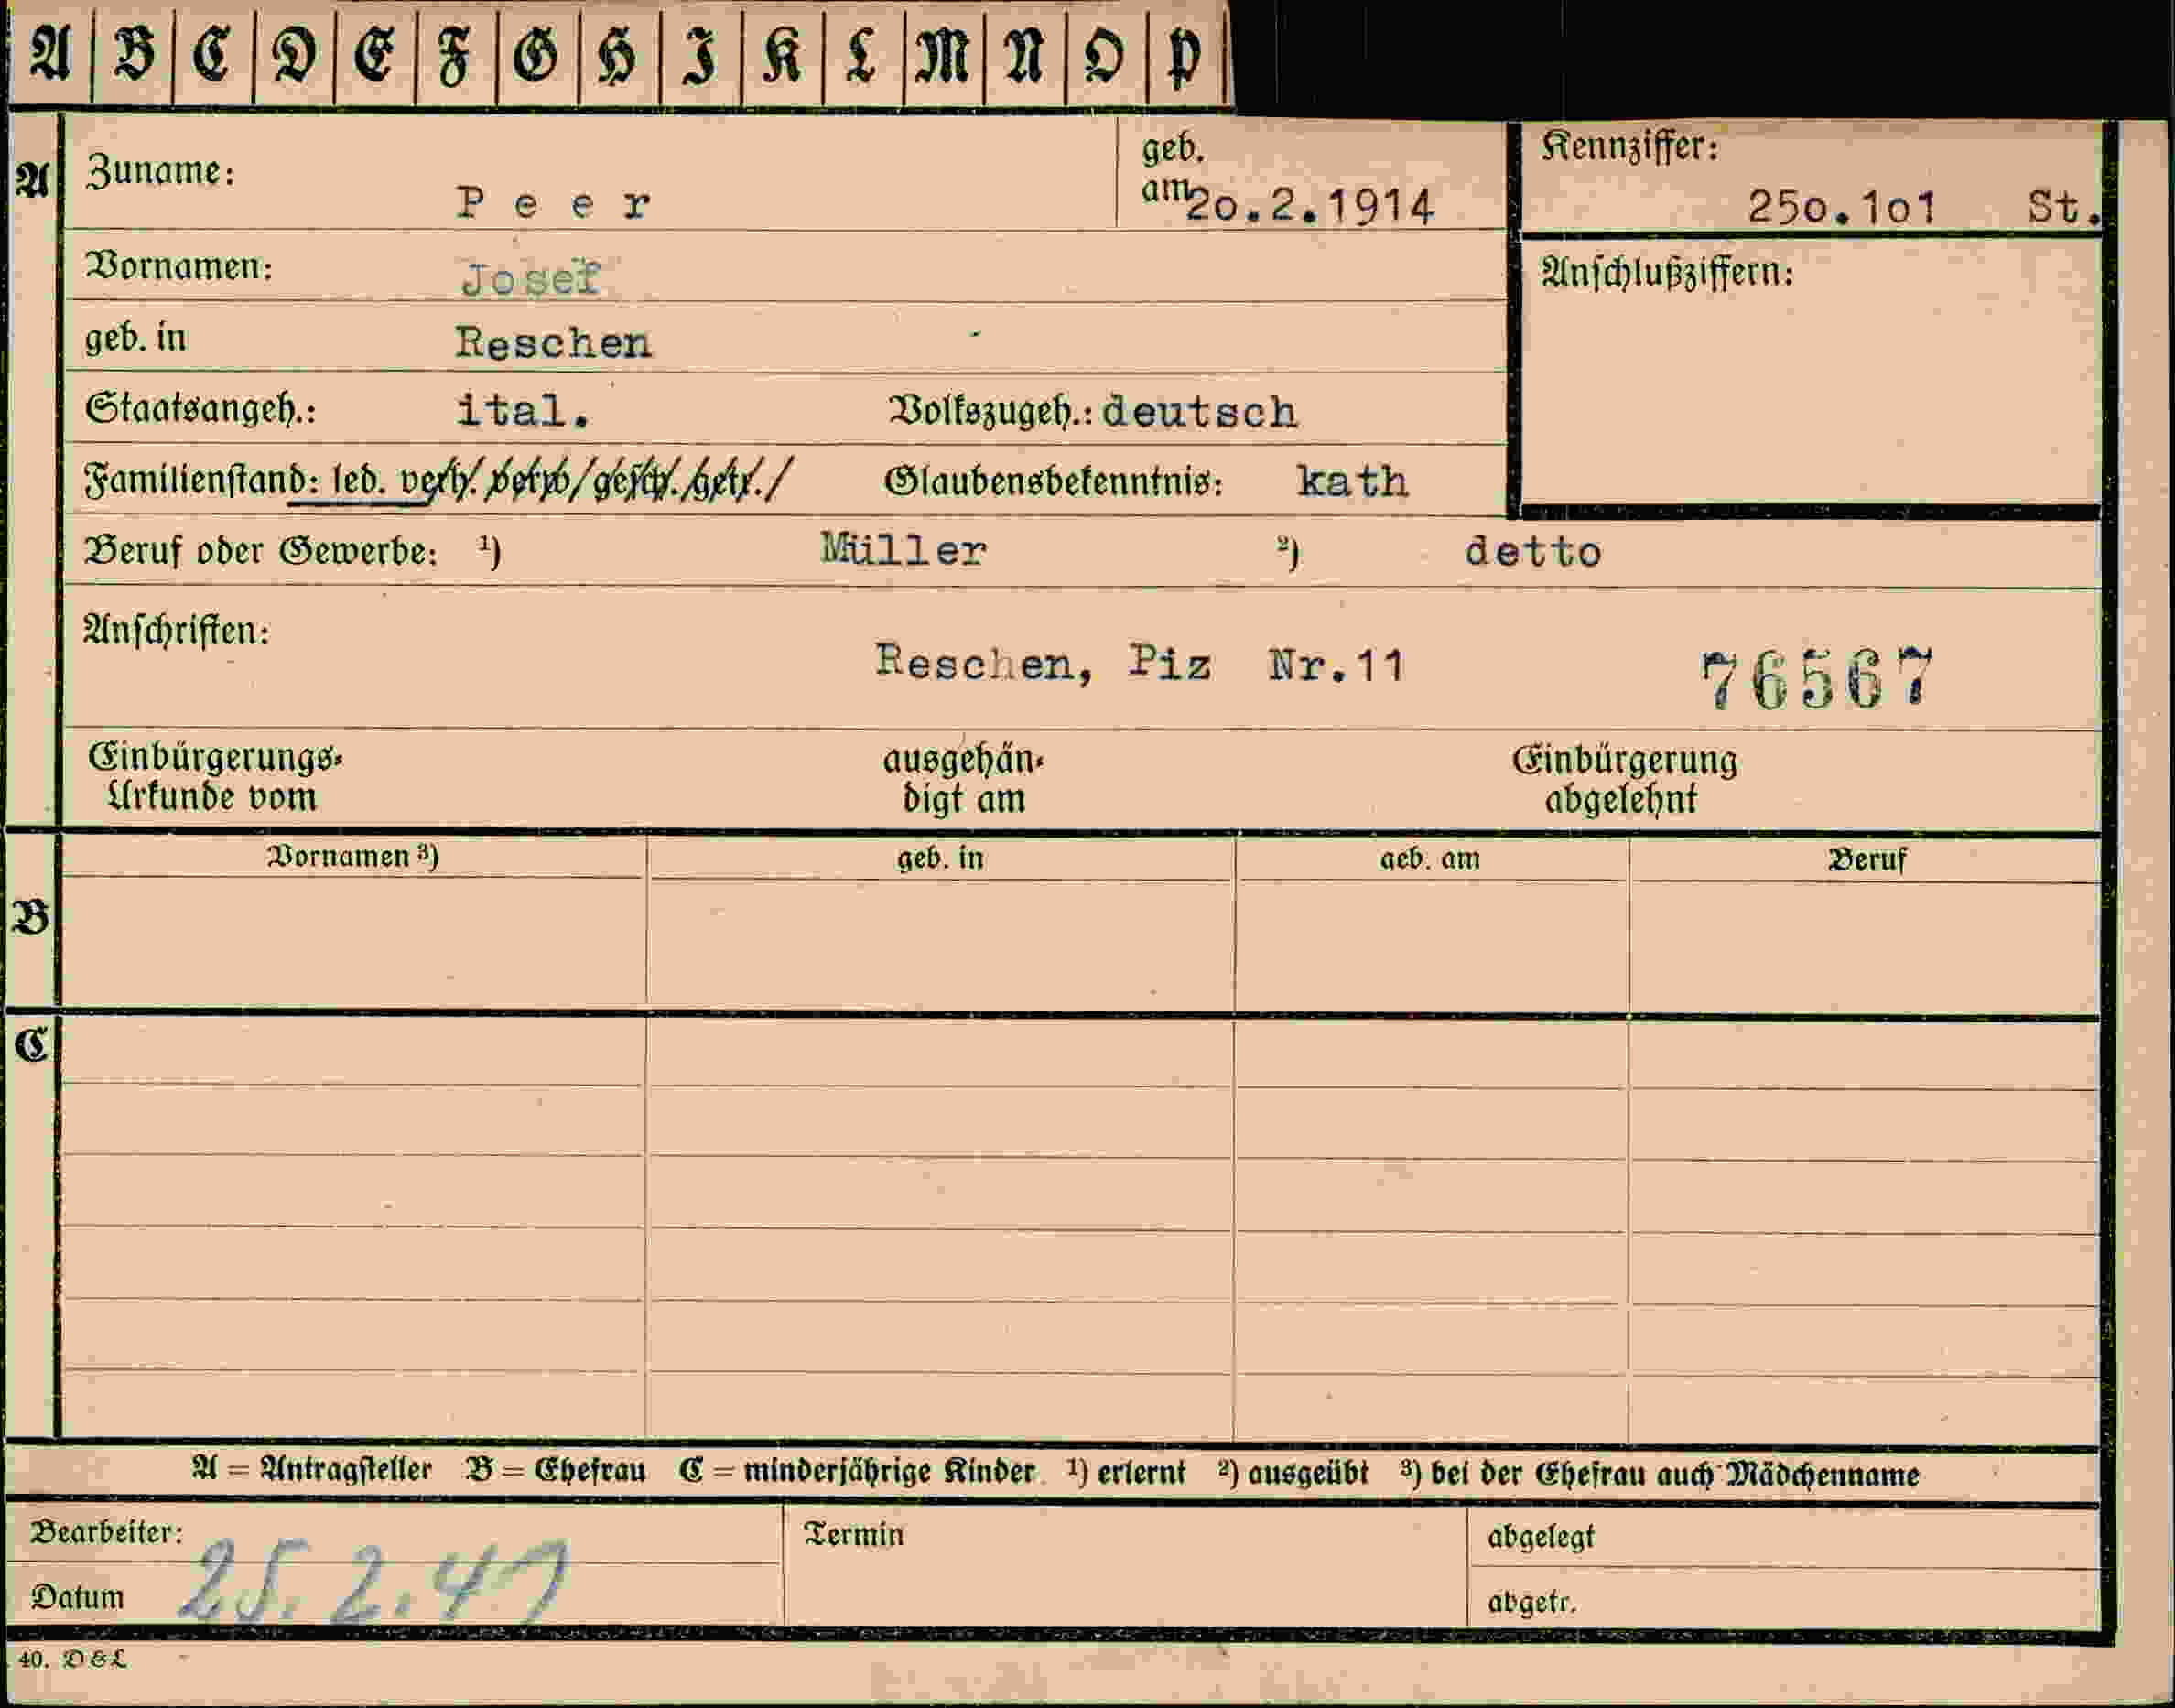 A B C D E F G H I K L M N O P
A Zuname: Peer geb. am 2o.2.1914 Kennziffer: 25o.1o1 St.
Vornamen: Josef Anschlußziffern:
geb. in Reschen
Staatsangeh.: ital. Volkszugeh.: deutsch
Familienstand: led. verh. verw. gesch. getr. Glaubensbekenntnis: kath
Beruf oder Gewerbe: ¹) Müller ²) detto
Anschriften: Reschen, Piz Nr.11 76567
Einbürgerungs- ausgehän- Einbürgerung
Urkunde vom digt am abgelehnt
Vornamen ³) geb. in geb. am Beruf
B
C
A = Antragsteller B = Ehefrau C = minderjährige Kinder ¹) erlernt ²) ausgeübt ³) bei der Ehefrau auch Mädchenname
Bearbeiter: Termin abgelegt
Datum 25.2.41 abgetr.
40. D & L